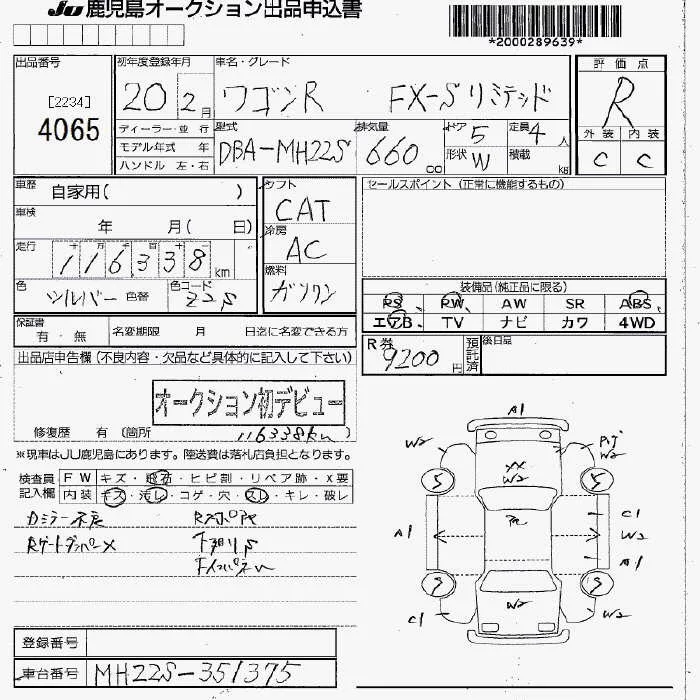 JU 鹿児島オークション出品申込書
*2000289639*
出品番号
[2234]
4065
初年度登録年月
20 2月
車名・グレード
ワゴンR FX-Sリミテッド
評価点
R
外装 内装
C C
ディーラー・並行
モデル年式 年
ハンドル 左・右
型式
DBA-MH22S
排気量
660 cc
ドア 5
定員 4 人
形状 W
積載 kg
車歴
自家用( )
車検
年 月( 日)
走行
十 万 千 百 十
116,338 km
色
シルバー 色替
色コード
Z2S
シフト
CAT
冷房
AC
燃料
ガソリン
セールスポイント (正常に機能するもの)
装備品(純正品に限る)
PS PW AW SR ABS
エアB TV ナビ カワ 4WD
保証書
有・無
名変期限 月 日迄に名変できる方
R券
9200円
預託済
後日品
出品店申告欄(不良内容・欠品など具体的に記入して下さい)
オークション初デビュー
修復歴 有(箇所 )
116338km
※現車はJU鹿児島にあります。陸送費は落札店負担となります。
検査員記入欄
FW キズ・飛石・ヒビ割・リペア跡・X要
内装 キズ・汚レ・コゲ・穴・スレ・キレ・破レ
Rゲートダンパー×
A1
W2
W2
XX
W2
5
5
A1
C1
W2
A1
5
5
C1
W2
W2
登録番号
車台番号 MH22S-351375